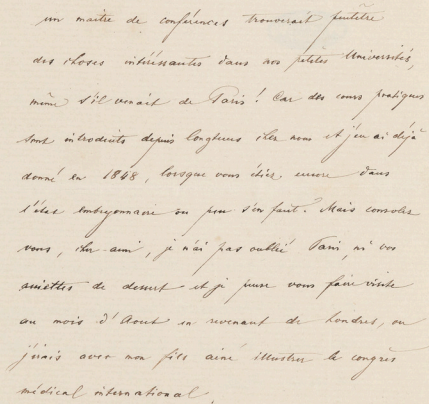 un maître de conférences trouverait peutêtre
des choses intéressantes dans nos petites Universités,
même s'il venait de Paris! Car des cours pratiques
sont introduits depuis longtems chez nous et j'en ai déjà
donné en 1848, lorsque vous étiez encore dans
l'état embryonnaire ou peu s'en faut. Mais consolez
vous, cher ami, je n'ai pas oublié Paris, ni vos
assiettes de dessert et je pense vous faire visite
au mois d'Aout en revenant de Londres, ou
j'irais avec mon fils ainé illustrer le congrès
médical international,